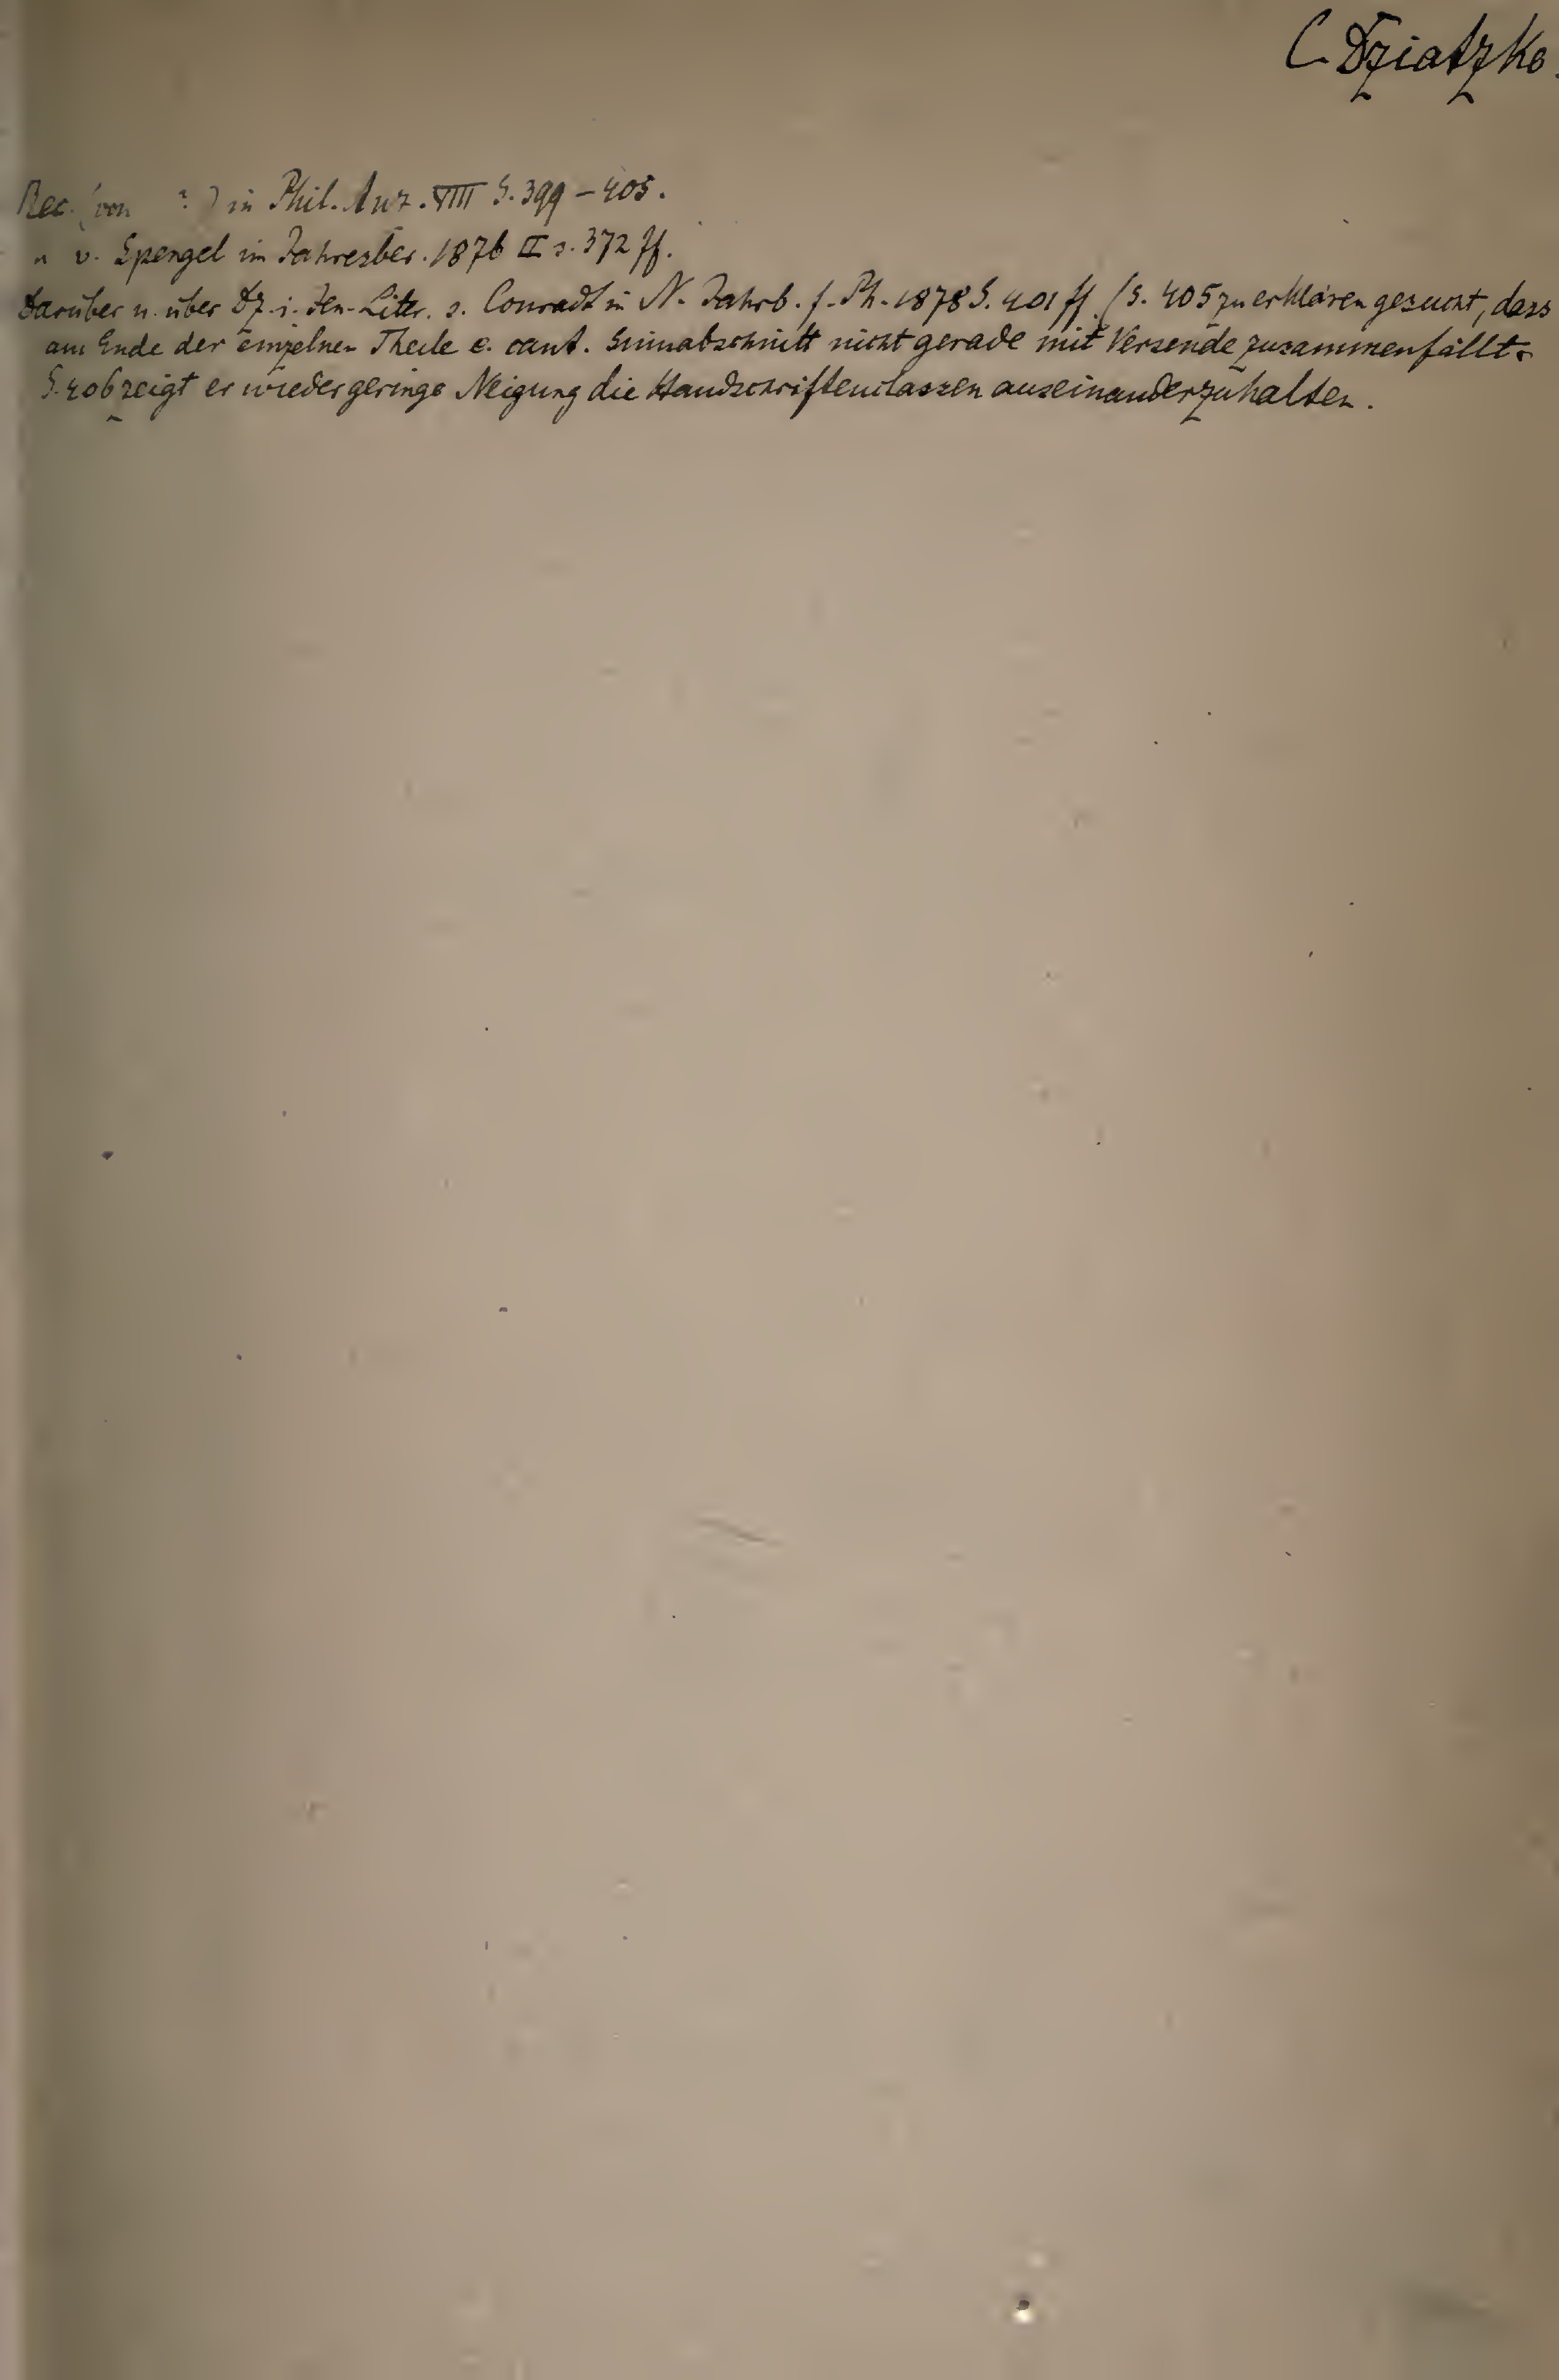 C. Dziatzko.
Rec. (von ?) in Phil. Anz. VIIII S. 399 – 405.
" v. Spengel im Jahresber. 1876 II s. 372 ff.
Darüber u. über Dz. i. Jen. Liter. s. Conradt in N. Jahrb. f. Ph. 1878 S. 401 ff. (S. 405 zu erklären gesucht, dass
am Ende der einzelnen Theile e. cant. Sinnabschnitt nicht gerade mit Versende zusammenfällt.
S. 406 zeigt er wieder geringe Neigung die Handschriftenclassen auseinanderzuhalten.